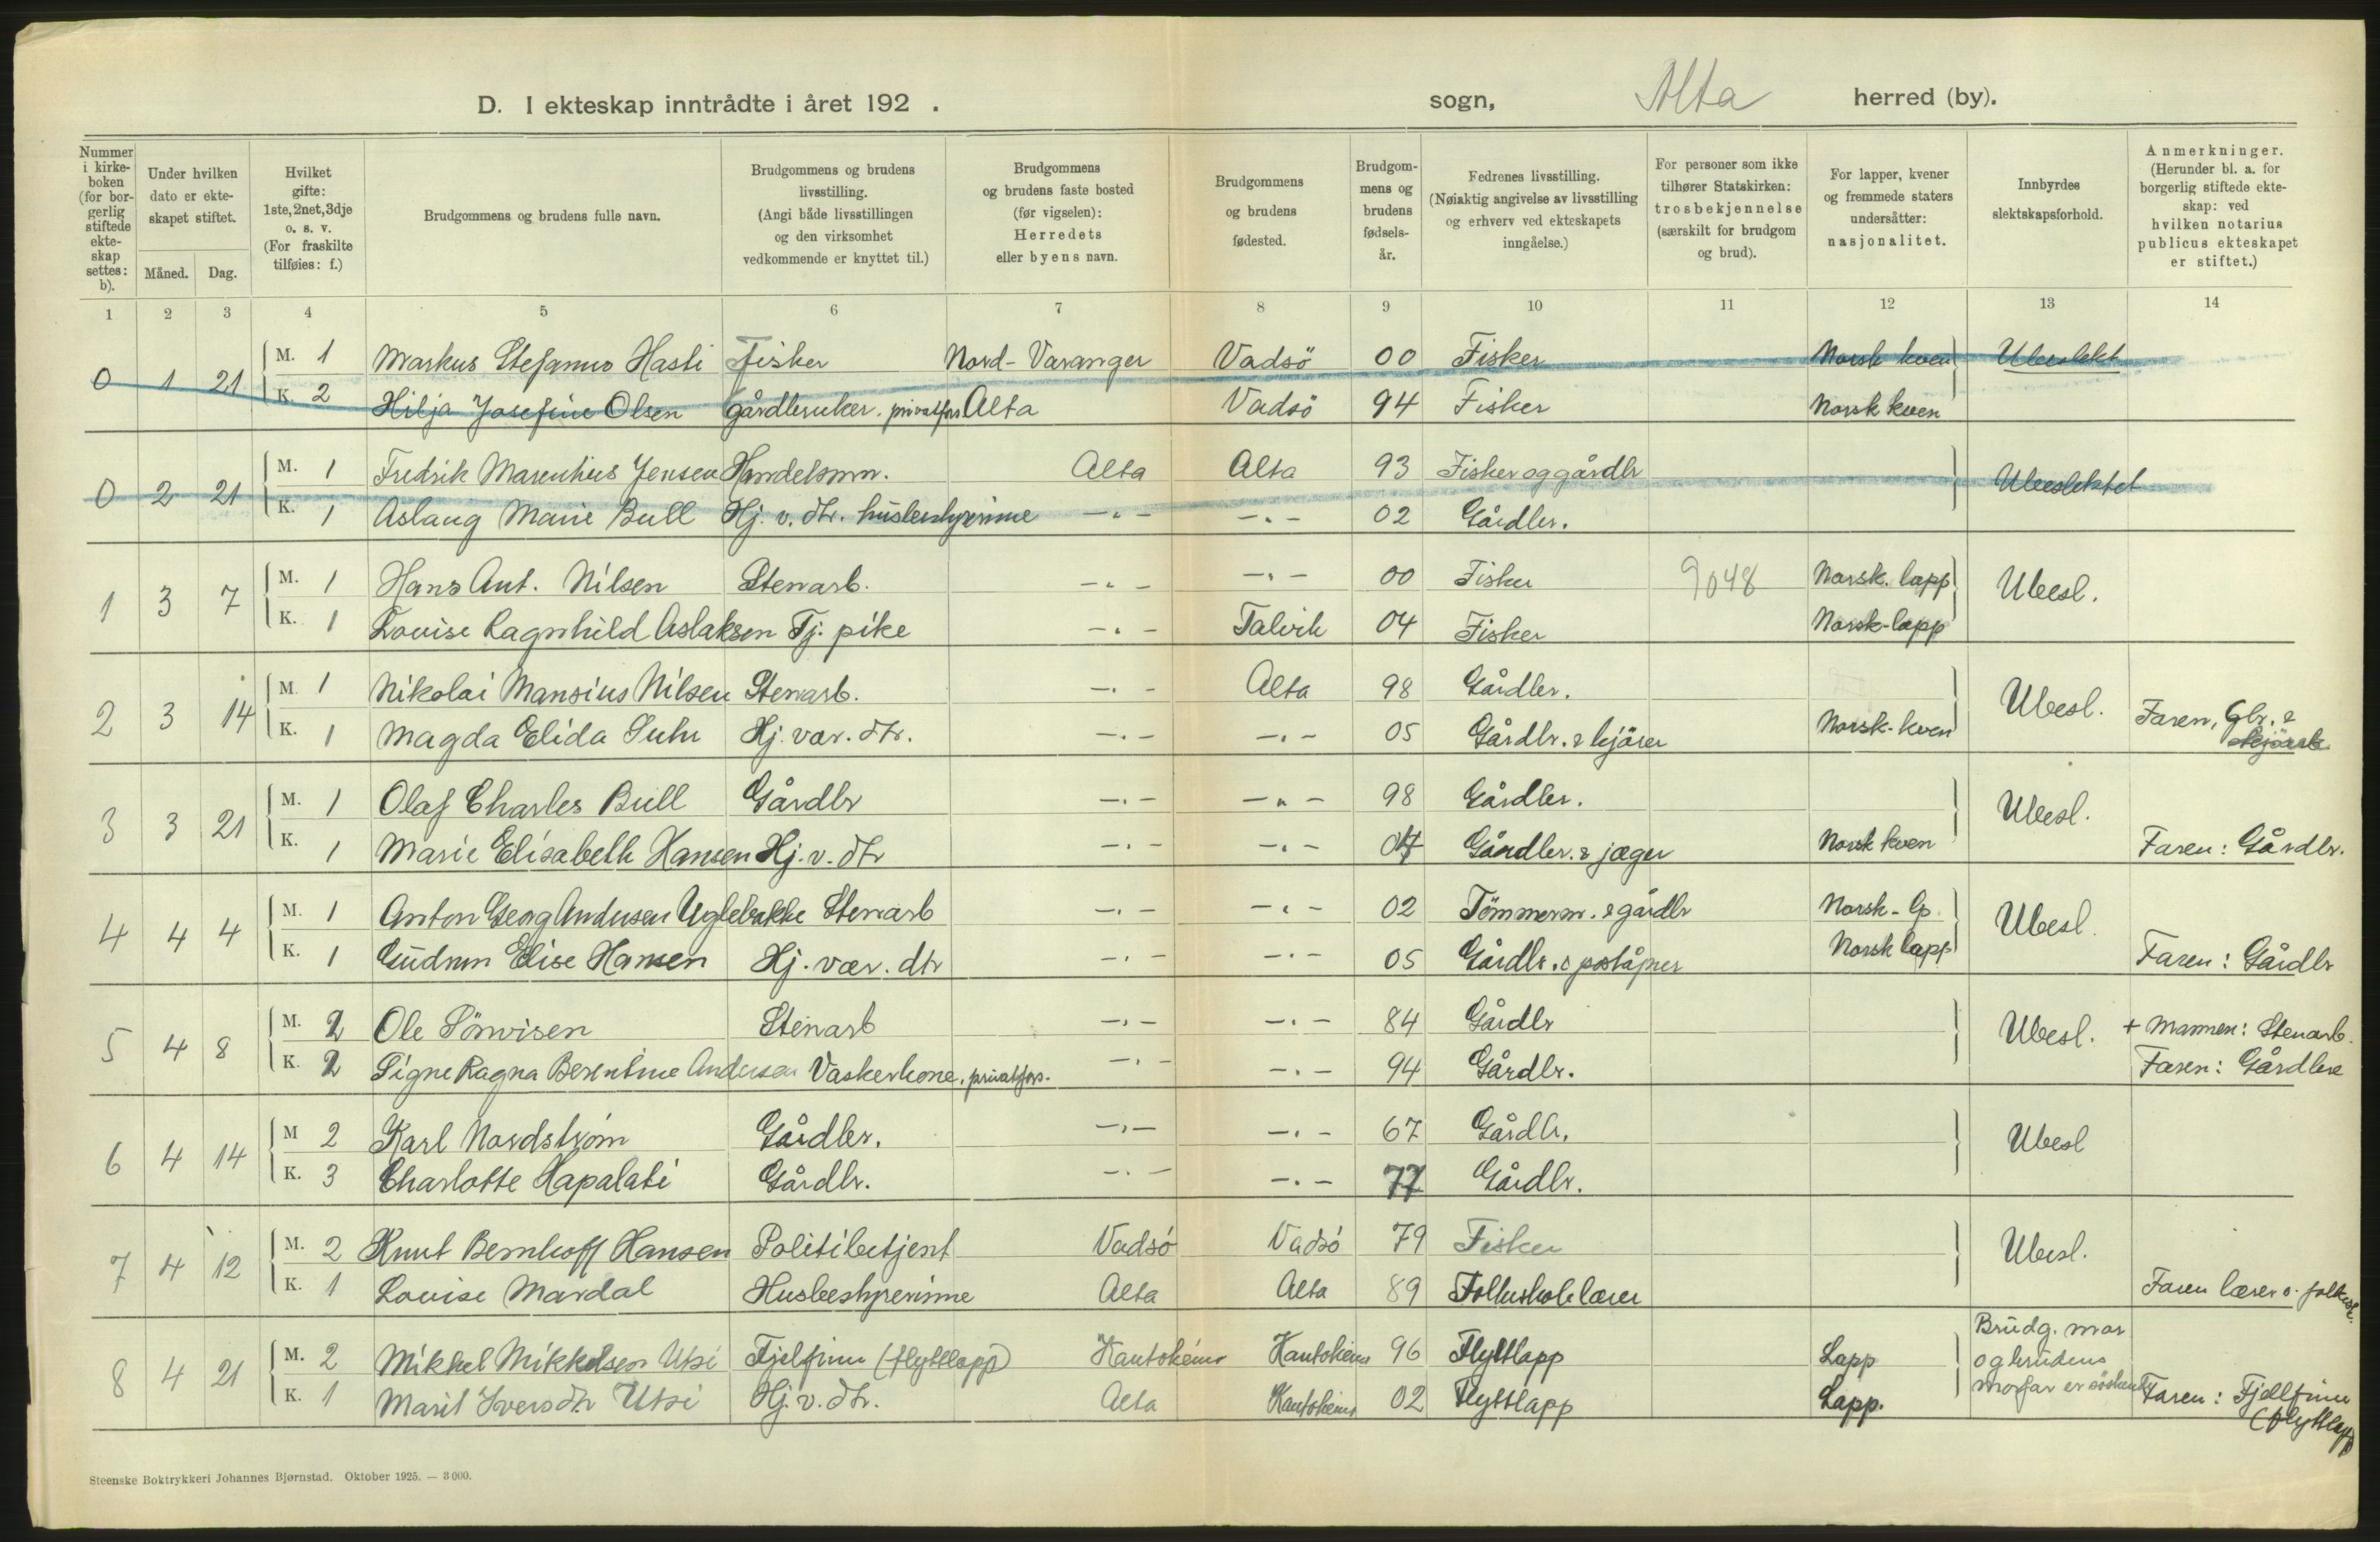 D. I ekteskap inntrådte i året 192 .
sogn, Alta herred (by).
Nummer i kirke-boken (for bor-gerlig stiftede ekte-skap settes: b).
Under hvilken dato er ekte-skapet stiftet.
Måned. Dag.
Hvilket gifte: 1ste, 2net, 3dje o. s. v. (For fraskilte tilføies: f.)
Brudgommens og brudens fulle navn.
Brudgommens og brudens livsstilling. (Angi både livsstillingen og den virksomhet vedkommende er knyttet til.)
Brudgommens og brudens faste bosted (før vigselen): Herredets eller byens navn.
Brudgommens og brudens fødested.
Brudgom-mens og brudens fødsels-år.
Fedrenes livsstilling. (Nøiaktig angivelse av livsstilling og erhverv ved ekteskapets inngåelse.)
For personer som ikke tilhører Statskirken: trosbekjennelse (særskilt for brudgom og brud).
For lapper, kvener og fremmede staters undersåtter: nasjonalitet.
Innbyrdes slektskapsforhold.
Anmerkninger. (Herunder bl. a. for borgerlig stiftede ekte-skap: ved hvilken notarius publicus ekteskapet er stiftet.)
1 2 3 4 5 6 7 8 9 10 11 12 13 14
0 1 21 M. 1 Markus Stefanus Hasti Fisker Nord-Varanger Vadsö 00 Fisker Norsk kven Ubeslekt
K. 2 Hilja Josefine Olsen gårdbruker. privatfors Alta Vadsö 94 Fisker Norsk kven
0 2 21 M. 1 Fredrik Marenhius Jensen Handelsmn. Alta Alta 93 Fisker og gårdbr Ubeslektet
K. 1 Aslaug Marie Bull Hj. v. dtr. husbestyrerinne -"- -"- 02 Gårdbr.
1 3 7 M. 1 Hans Ant. Nilsen Stenarb. -"- -"- 00 Fisker 9048 Norsk. lapp Ubesl.
K. 1 Louise Ragnhild Aslaksen Tj. pike -"- Talvik 04 Fisker Norsk-lapp
2 3 14 M. 1 Nikolai Mansius Nilsen Stenarb. -"- Alta 98 Gårdbr. Ubesl.
K. 1 Magda Elida Suhr Hj. vær. dtr. -"- -"- 05 Gårdbr. & kjörer Norsk-kven Faren, Gbr. &
3 3 21 M. 1 Olaf Charles Bull Gårdbr -"- -"- 98 Gårdbr. Ubesl.
K. 1 Marie Elisabeth Hansen Hj. v. dtr -"- -"- 07 Gårdbr. & jæger Norsk kven Faren: Gårdbr.
4 4 4 M. 1 Anton Georg Andersen Uglebakke Stenarb -"- -"- 02 Tömmerm. & gårdbr Norsk-lp. Ubesl.
K. 1 Gudrun Elise Hansen Hj. vær. dtr -"- -"- 05 Gårdbr. & poståpner Norsk lapp Faren: Gårdbr
5 4 8 M. 2 Ole Sönvisen Stenarb -"- -"- 84 Gårdbr Ubesl. + Mannen: Stenarb.
K. 2 Signe Ragna Berentine Andersen Vaskerkone. privatfors. -"- -"- 94 Gårdbr. Faren: Gårdbre
6 4 14 M 2 Karl Nordstrøm Gårdbr. -"- -"- 67 Gårdbr. Ubesl
K. 3 Charlotte Hapalati Gårdbr. -"- -"- 77 Gårdbr.
7 4 12 M. 2 Knut Bernhoff Hansen Politibetjent Vadsö Vadsö 79 Fisker Ubesl.
K. 1 Louise Mardal Husbestyrerinne Alta Alta 89 Folkeskolelærer Faren lærer v. folkesk.
8 4 21 M. 2 Mikkel Mikkelsen Utsi Fjelfinn (flyttlapp) Kautokeino Kautokeino 96 Flyttlapp Lapp Brudg. mor og brudens morfar er søsken
K. 1 Marit Iversdtr Utsi Hj. v. dtr. Alta Kautokeino 02 Flyttlapp Lapp. Faren: Fjellfinn (flyttlapp)
Steenske Boktrykkeri Johannes Bjørnstad. Oktober 1925. — 3000.